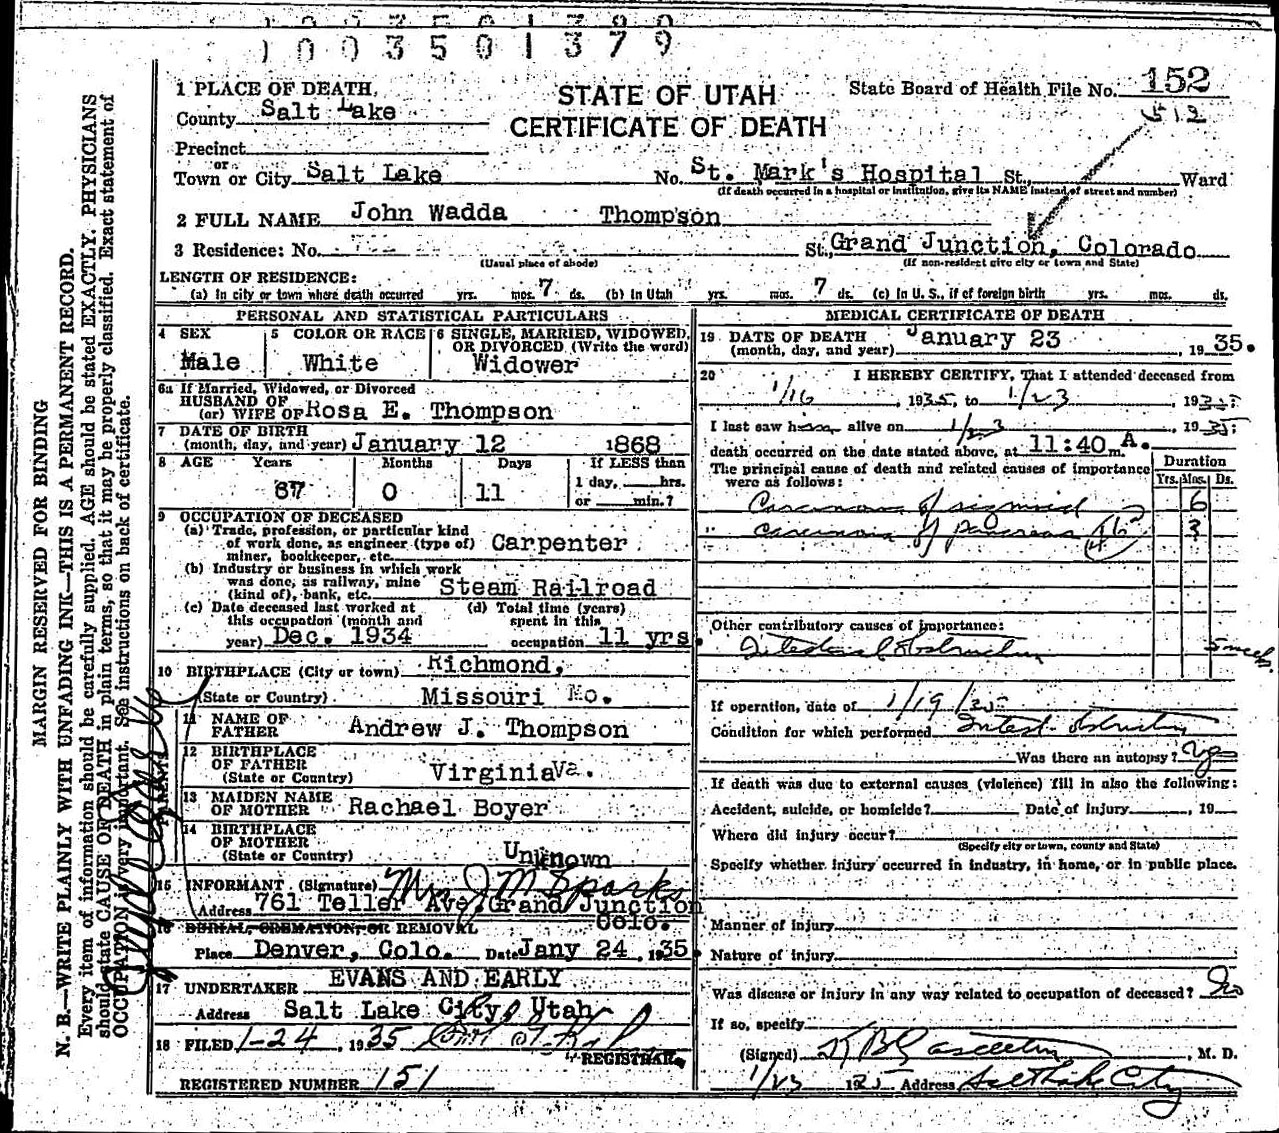 1003501379
MARGIN RESERVED FOR BINDING
N. B.—WRITE PLAINLY WITH UNFADING INK—THIS IS A PERMANENT RECORD.
Every item of information should be carefully supplied. AGE should be stated EXACTLY. PHYSICIANS
should state CAUSE OF DEATH in plain terms, so that it may be properly classified. Exact statement of
OCCUPATION is very important. See instructions on back of certificate.
1 PLACE OF DEATH,
County Salt Lake
Precinct
or
Town or City Salt Lake
STATE OF UTAH
CERTIFICATE OF DEATH
State Board of Health File No. 152
512
No. St. Mark's Hospital St., Ward
(If death occurred in a hospital or institution, give its NAME instead of street and number)
2 FULL NAME John Wadda Thompson
3 Residence: No. St., Grand Junction, Colorado
(Usual place of abode) (If non-resident give city or town and State)
LENGTH OF RESIDENCE:
(a) In city or town where death occurred yrs. mos. 7 ds. (b) In Utah yrs. mos. 7 ds. (c) In U. S., if of foreign birth yrs. mos. ds.
PERSONAL AND STATISTICAL PARTICULARS
4 SEX Male
5 COLOR OR RACE White
6 SINGLE, MARRIED, WIDOWED, OR DIVORCED (Write the word) Widower
6a If Married, Widowed, or Divorced
HUSBAND OF
(or) WIFE OF Rosa E. Thompson
7 DATE OF BIRTH
(month, day, and year) January 12 1868
8 AGE Years Months Days If LESS than
1 day, hrs.
67 0 11 or min.?
9 OCCUPATION OF DECEASED
(a) Trade, profession, or particular kind
of work done, as engineer (type of)
miner, bookkeeper, etc. Carpenter
(b) Industry or business in which work
was done, as railway, mine
(kind of), bank, etc. Steam Railroad
(c) Date deceased last worked at
this occupation (month and
year) Dec. 1934
(d) Total time (years)
spent in this
occupation 11 yrs.
10 BIRTHPLACE (City or town) Richmond,
(State or Country) Missouri Mo.
PARENTS
11 NAME OF
FATHER Andrew J. Thompson
12 BIRTHPLACE
OF FATHER
(State or Country) Virginia Va.
13 MAIDEN NAME
OF MOTHER Rachael Boyer
14 BIRTHPLACE
OF MOTHER
(State or Country) Unknown
15 INFORMANT (Signature) Mrs J M Sparks
Address 761 Teller Ave. Grand Junction
Colo.
16 BURIAL, CREMATION OR REMOVAL
Place Denver, Colo. Date Jany 24, 1935.
17 UNDERTAKER EVANS AND EARLY
Address Salt Lake City, Utah
18 FILED 1-24, 1935
REGISTRAR.
REGISTERED NUMBER 151
MEDICAL CERTIFICATE OF DEATH
19 DATE OF DEATH
(month, day, and year) January 23, 1935.
20 I HEREBY CERTIFY, That I attended deceased from
1/16, 1935, to 1/23, 1935
I last saw him alive on 1/23, 1935
death occurred on the date stated above, at 11:40 A. m.
The principal cause of death and related causes of importance
were as follows:
Duration
Yrs. Mos. Ds.
Carcinoma of sigmoid 6
" carcinoma of pancreas 46 3
Other contributory causes of importance:
Intestinal obstruction 5 weeks
If operation, date of 1/19/35
Condition for which performed Intest. obstruction
Was there an autopsy? Yes
If death was due to external causes (violence) fill in also the following:
Accident, suicide, or homicide? Date of injury, 19
Where did injury occur?
(Specify city or town, county and State)
Specify whether injury occurred in industry, in home, or in public place.
Manner of injury
Nature of injury
Was disease or injury in any way related to occupation of deceased? No
If so, specify
(Signed) , M. D.
1/23 1935 Address Salt Lake City